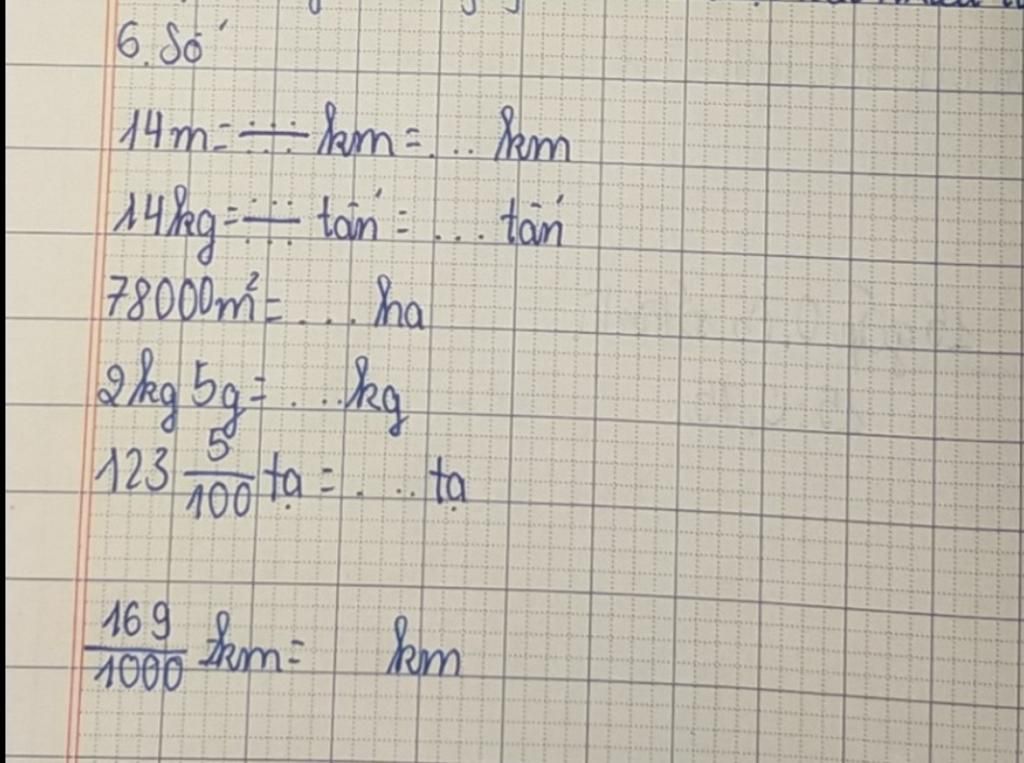 6. Số
14m = ... km = ... km
14kg = ... tấn = ... tấn
78000m² = .... ha
2kg 5g = ....kg
123 5/100 tạ = .... tạ
169/1000 km = km